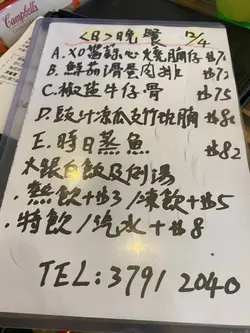 Campbell's
<日>晚餐 12/4
A. XO醬蒜心燒腩仔 $72
B. 鮮茄滑蛋肉排 $72
C. 椒鹽牛仔骨 $75
D. 豉汁涼瓜支竹坑腩 $80
E. 時日蒸魚 $82
水銀白飯及例湯
·熱飲+$3/凍飲+$5
·特飲/汽水+$8
TEL: 3791 2040